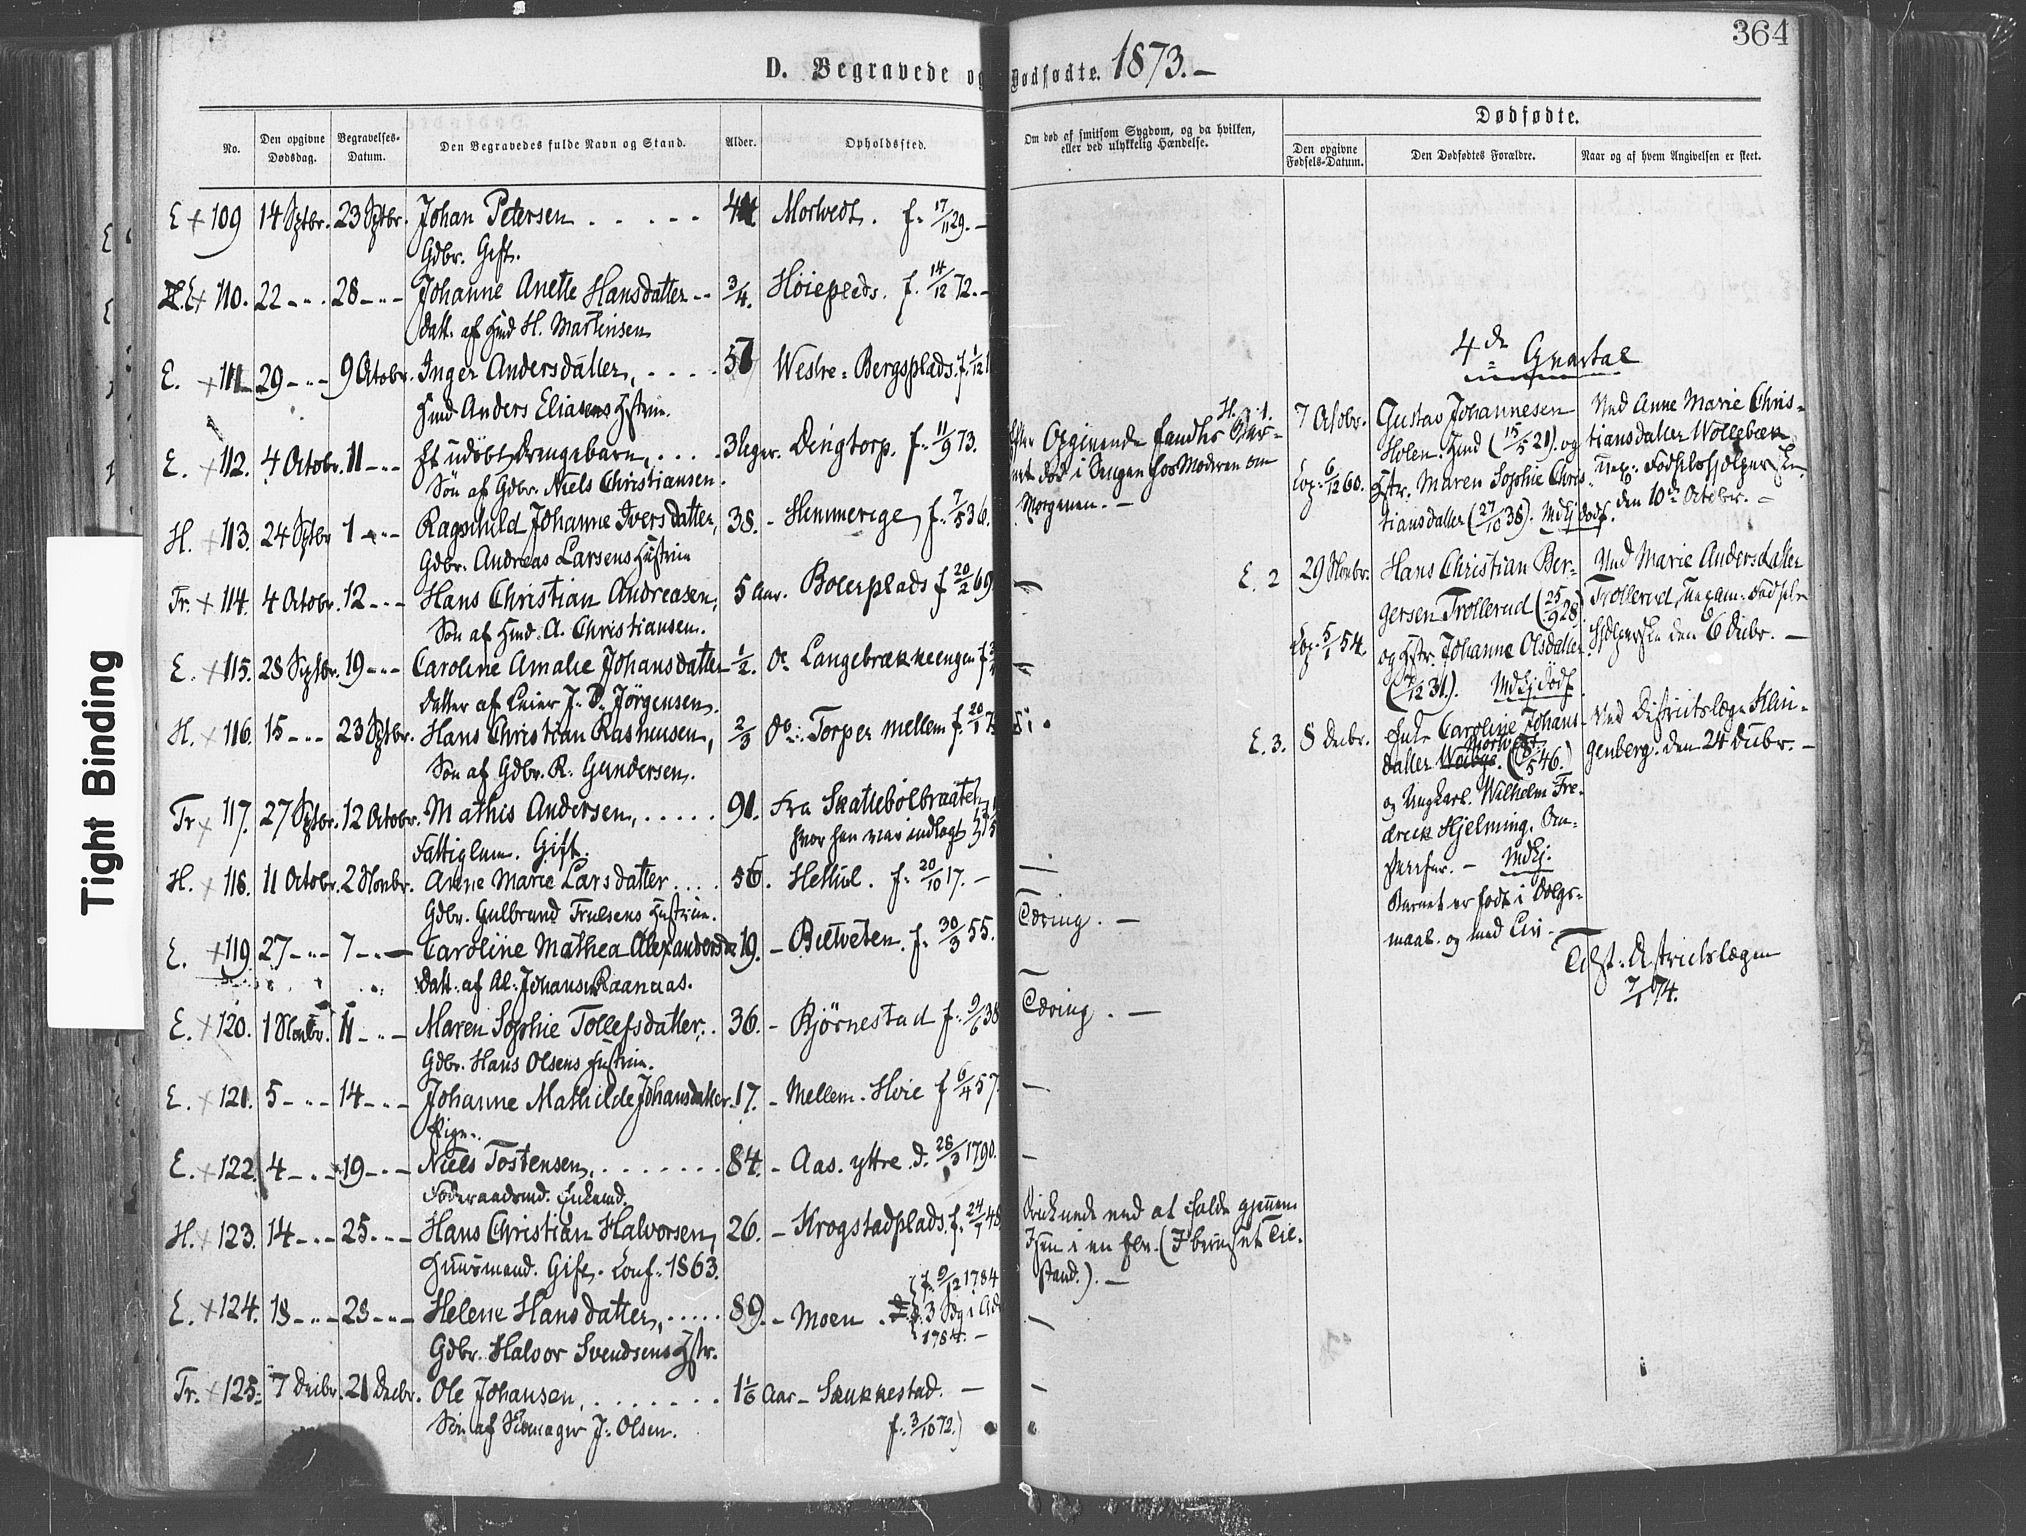 364
D. Begravede og Dødfødte. 1873.-
Dødfødte.
No.
Den opgivne Dødsdag.
Begravelses-Datum.
Den Begravedes fulde Navn og Stand.
Alder.
Opholdssted.
Om død af smitsom Sygdom, og da hvilken,
eller ved ulykkelig Hændelse.
Den opgivne Fødsels-Datum.
Den Dødfødtes Forældre.
Naar og af hvem Angivelsen er skeet.
E + 109 14 Sptbr. 23 Sptbr. Johan Petersen . . . . . Morvedt. f. 17/11 29. -
Gdbr. Gift.
E + 110. 22 - " - 28 - " - Johanne Anette Hansdatter - - 3/4. Høiepleds. f. 14/12 72. -
Datt. af Hmd H. Martinsen
E. + 111 29 - " - 9 Octobr. Inger Andersdatter, . . . . 57 Westre = Bergsplads. f. 1/12
Hmd Anders Eliasens Hstrue.
E. + 112. 4 Octobr. 11 - " - Et udøbt Drengebarn, . . . . 3 Uger. Dengtorp. f. 11/9 73.
Søn af Gdbr. Niels Christiansen.
H. + 113. 24 Sptbr 1 - " - Ragnhild Johanne Iversdatter, 38. - Hemmerige, f. 7/5 36.
Gdbr. Andreas Larsens Hustrue
Tr. + 114. 4 Octobr. 12 - " - Hans Christian Andreasen, 5 Aar. Bolerplads f 20/2 69
Søn af Hmd. A. Christiansen.
E. + 115. 28 Sptbr. 19 - " - Caroline Amalie Johansdatter 1/2. Do Langebrækkeengen f
Datter af Leier J. D. Jörgensen.
H. + 116. 15 - " - 23 Sptbr. Hans Christian Rasmusen, 2/3 Do. Torper mellem f. 20/1
Søn af Gdbr. R. Gundersen.
Tr + 117. 27 Sptbr. 12 Octobr. Mathis Andersen, . . . . . 91. Fra Skatiebölbraaten
Fattiglem. Gift. hvor han var indlagt
H. + 118. 11 Octobr. 2 Novbr. Anne Marie Larsdatter . . . . 56. Hellul. f. 20/10 17. -
Gdbr. Gulbrand Trulsens Hustrue.
E. + 119. 27 - " - 7 - " - Caroline Mathea Alexandersda 19. - Butveten. f. 30/3 55.
Datt. af Al. Johansen Raanaas.
E. + 120. 1 Novbr. 11 - " - Maren Sophie Tollefsdatter, . 36. - Bjørnestad f. 9/6 38
Gdbr. Hans Olsens Hustrue.
E. + 121. 5 - " - 14 - " - Johanne Mathilde Johansdatter. 17. - Mellem. Hoie f 6/4 57.
Pige.
E. + 122. 4 - " - 19 - " - Niels Tostensen, . . . . . . . 84. - Aas. yttre. d. 28/3 1790.
Föderaadsmd. Enkemd.
H. + 123. 14 - " - 25 - " - Hans Christian Halvorsen, 26. - Krogstadplads. f. 24/1 48
Huusmand. Gift. Conf. 1863.
E. + 124. 18 - " - 23 - " - Helene Hansdatter, . . . . . 89. - Moen. { f. 9/12 1784
Gdbr. Halvor Svendsens Hstr. 3 Sdg i Adv 1784. -
Tr. + 125. 7 Decbr. 21 Decbr. Ole Johansen, . . . . . . . 1 1/6 Aar - Skukkestad. -
Søn af Skomager J. Olsen. f. 3/10 72.)
Efter Opgivende fandtes Bar-
net død i Sengen hos Moderen om
Morgenen. -
Tæring. -
Tæring. -
Druknede ved at falde gjennem
Isen i en Elv. (I beruset Til-
stand.). -
4de Qvartal
H. 1. 7 Octobr. Gustav Johannesen
Holen. Hmd (15/5 21). og
Cop. 6/12 60. Hstr. Maren Sophie Chris-
tiansdatter (27/10 38). Mdkj dødf.
Ved Anne Marie Chris-
tiansdatter Wollebæk
Uex. Fødselshjelperske
den 10de Octobr. -
E. 2 29 Novbr. Hans Christian Ber-
gersen Trollerud (25/9 28)
Cop. 5/1 54. og Hstr. Johanne Olsdatter
(/12 31.). Mdkj dødf.
Ved Marie Andersdatter
Trollerud, Uexam. Fødsels
hjelperske den 6 Decbr. -
E. 3. 8 Decbr. Enke Caroline Johans-
datter Morvedt. (/5 46.)
og Ungkarl. Wilhelm Fre-
derick Hjelming.
Mdkj.
Barnet er født i Dølgs-
maal. og med Liv. -
Ved Districtslæge Klin-
genberg. den 24 Decbr. -
Tilst. Distrietslægen
7/1 74.
Tight Binding